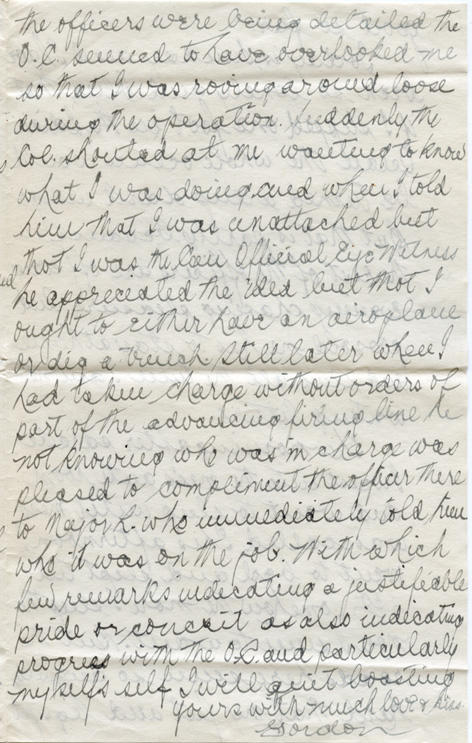 the officers were being detailed the
O.C. seemed to have overlooked me
so that I was roving around loose
during the operation. Suddenly the
Col. shouted at me wanting to know
what I was doing and when I told
him that I was unattached but
that I was the Can Official Eye Witness
he appreciated the idea but that I
ought to either have an aeroplane
or dig a trench still later when I
had taken charge without orders of
part of the advancing firing line he
not knowing who was in charge was
pleased to compliment the officer there
to Major L. who immediately told him
who it was on the job. With which
few remarks indicating a justifiable
pride or conceit as also indicating
progress with the O.C. and particularly
myself's self I will quit boasting
yours with much love & kiss.
Gordon